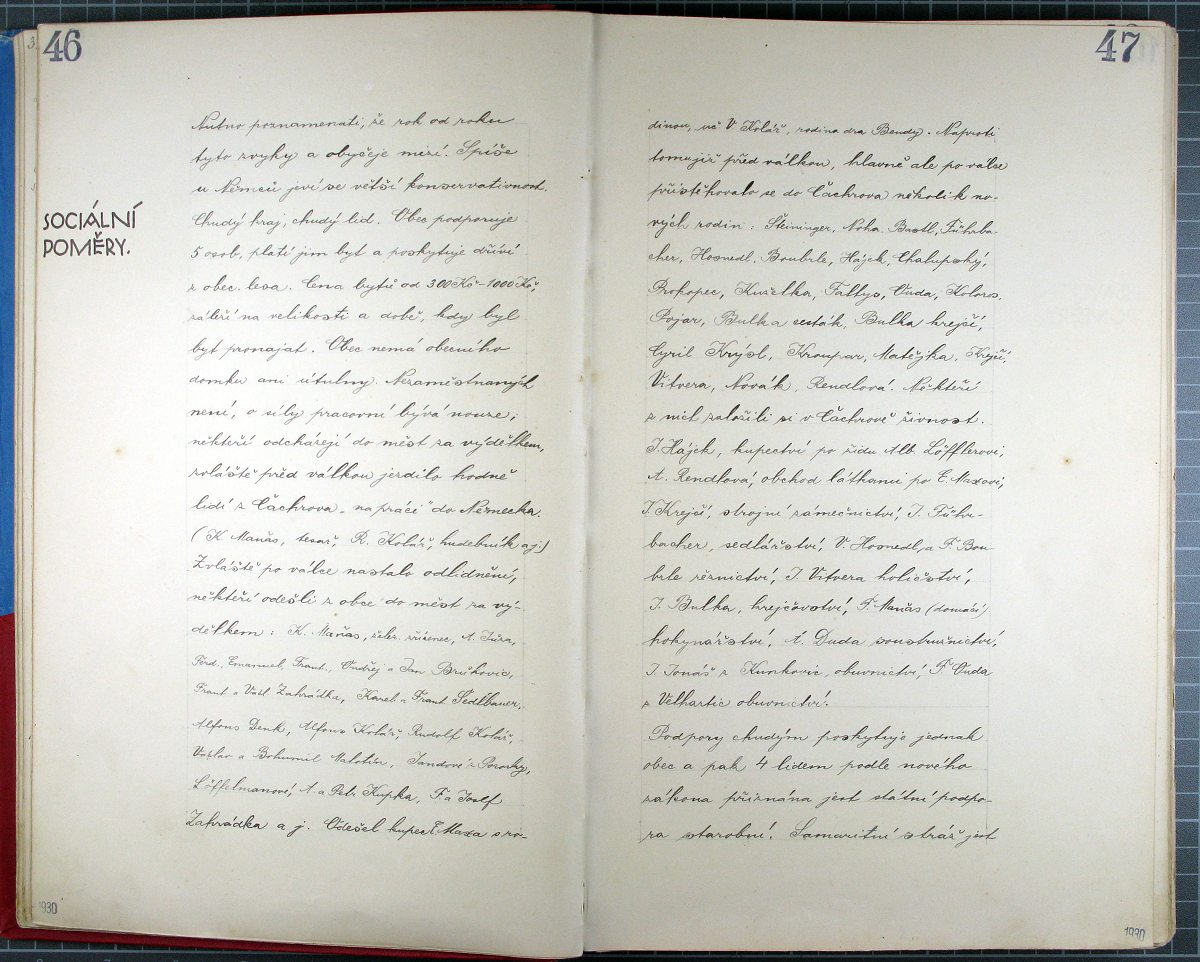 46
Nutno poznamenati, že rok od roku
tyto zvyky a obyčeje mizí. Spíše
u Němců jeví se větší konservativnost.
SOCIÁLNÍ
POMĚRY.
Chudý kraj, chudý lid. Obec podporuje
5 osob, platí jim byt a poskytuje dříví
z obec. lesa. Cena bytů od 300 Kč - 1000 Kč,
záleží na velikosti a době, kdy byl
byt pronajat. Obec nemá obecního
domku ani útulny. Nezaměstnaných
není, o síly pracovní bývá nouze;
někteří odcházejí do měst za výdělkem,
zvláště před válkou jezdilo hodně
lidí z Čachrova „na práci" do Německa.
(K. Maňas, tesař, R. Kolář, hudebník a j.)
Zvláště po válce nastalo odlidnění,
někteří odešli z obce do měst za vý-
dělkem: K. Maňas, želez. zřízenec, A. Tůza,
Ferd. Emanuel, Frant., Ondřej a Jan Bružkovic,
Frant. a Václ. Zahrádka, Karel a Frant. Sedlbauer,
Alfons Denk, Alfons Kolář, Rudolf Kolář,
Václav a Bohumil Malotín, Jandovi z
Löffelmanovi, A. a Petr Kupka, F. a Josef
Zahrádka a j. Odešel kupec E. Maxa s ro-
1930
47
dinou, uč V. Kolář, rodina dra Bendy. Naproti
tomu již před válkou, hlavně ale po válce
přistěhovalo se do Čachrova několik no-
vých rodin: Steininger, Noha, Bastl, Führba-
cher, Hosnedl, Boubrle, Hájek, Chalupský,
Prokopec, Kuželka, Faltys, Duda, Koloros,
Pojar, Bulka cesták, Bulka krejčí,
Cyril Krýsl, Kroupar, Matějka, Krejčí,
Vitvera, Novák, Rendlová. Někteří
z nich založili si v Čachrově živnost.
J. Hájek, kupectví po židu Alb. Löfflerovi,
A. Rendlová, obchod látkami po E. Maxovi,
J. Krejčí, strojní zámečnictví, J. Führ-
bacher, sedlářství, V. Hosnedl, a F. Bou-
brle řeznictví, J. Vitvera holičství,
J. Bulka, krejčovství, F. Maňas (domácí)
hokynářství, A. Duda soustružnictví,
J. Jonáš z Kunkovic, obuvnictví, F. Duda
z Velhartic obuvnictví.
Podpory chudým poskytuje jednak
obec a pak 4 lidem podle nového
zákona přiznána jest státní podpo-
ra starobní. Samaritní stráž jest
1930